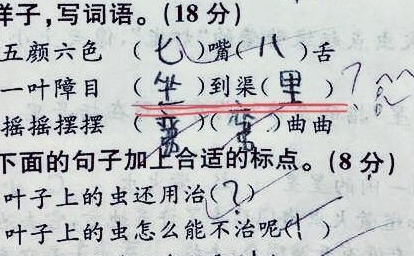 样子,写词语。(18分)
五颜六色 (七)嘴(八)舌
一叶障目 (坐)到渠(里)?
摇摇摆摆 (弯)(弯)曲曲
下面的句子加上合适的标点。(8分)
叶子上的虫还用治(?)
叶子上的虫怎么能不治呢(!)